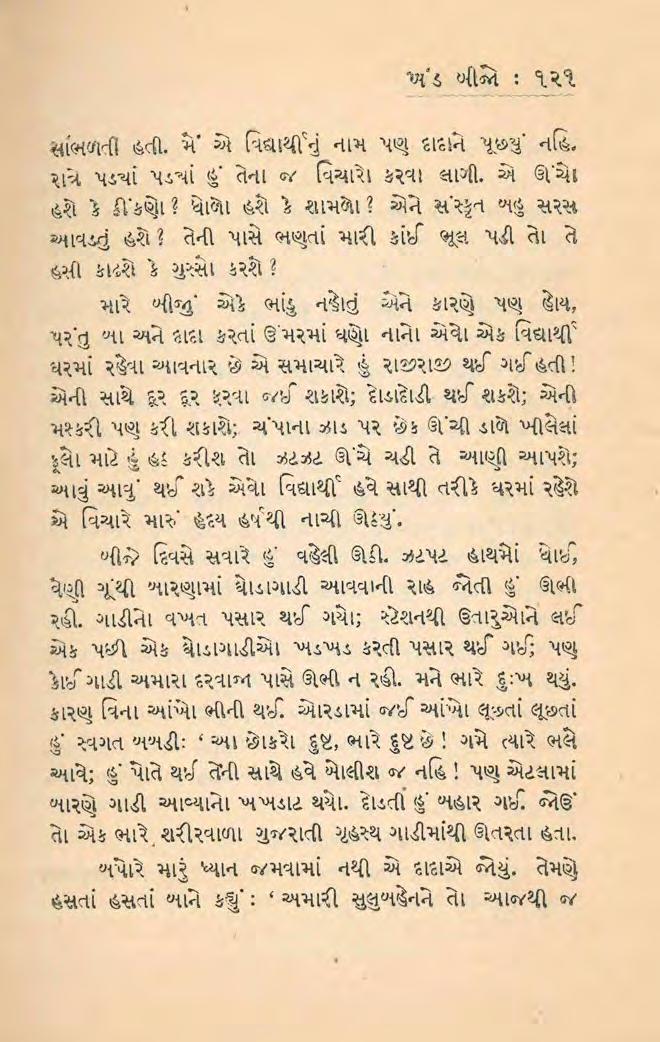 ખંડ બીજો : ૧૨૧
સાંભળતી હતી. મેં એ વિદ્યાર્થીનું નામ પણ દાદાને પૂછયું નહિ.
રાત્રે પડયાં પડયાં હું તેના જ વિચારો કરવા લાગી. એ ઊંચો
હશે કે ઠીંકણો? ધોળો હશે કે શામળો? એને સંસ્કૃત બહુ સરસ
આવડતું હશે? તેની પાસે ભણતાં મારી કાંઈ ભૂલ પડી તો તે
હસી કાઢશે કે ગુસ્સો કરશે?
મારે બીજું એકે ભાંડુ નહોતું એને કારણે પણ હોય,
પરંતુ બા અને દાદા કરતાં ઉંમરમાં ઘણો નાનો એવો એક વિદ્યાર્થી
ઘરમાં રહેવા આવનાર છે એ સમાચારે હું રાજીરાજી થઈ ગઈ હતી!
એની સાથે દૂર દૂર ફરવા જઈ શકાશે; દોડાદોડી થઈ શકશે; એની
મશ્કરી પણ કરી શકાશે; ચંપાના ઝાડ પર છેક ઊંચી ડાળે ખીલેલાં
ફૂલો માટે હું હઠ કરીશ તો ઝટઝટ ઊંચે ચડી તે આણી આપશે;
આવું આવું થઈ શકે એવો વિદ્યાર્થી હવે સાથી તરીકે ઘરમાં રહેશે
એ વિચારે મારું હૃદય હર્ષથી નાચી ઊઠયું.
બીજે દિવસે સવારે હું વહેલી ઊઠી. ઝટપટ હાથમોં ધોઈ,
વેણી ગૂંથી બારણામાં ઘોડાગાડી આવવાની રાહ જોતી હું ઊભી
રહી. ગાડીનો વખત પસાર થઈ ગયો; સ્ટેશનથી ઉતારુઓને લઈ
એક પછી એક ઘોડાગાડીઓ ખડખડ કરતી પસાર થઈ ગઈ; પણ
કોઈ ગાડી અમારા દરવાજા પાસે ઊભી ન રહી. મને ભારે દુઃખ થયું.
કારણ વિના આંખો ભીની થઈ. ઓરડામાં જઈ આંખો લૂછતાં લૂછતાં
હું સ્વગત બબડી: ‘ આ છોકરો દુષ્ટ, ભારે દુષ્ટ છે! ગમે ત્યારે ભલે
આવે; હું પોતે થઈ તેની સાથે હવે બોલીશ જ નહિ! પણ એટલામાં
બારણે ગાડી આવ્યાનો ખખડાટ થયો. દોડતી હું બહાર ગઈ. જોઉં
તો એક ભારે શરીરવાળા ગુજરાતી ગૃહસ્થ ગાડીમાંથી ઊતરતા હતા.
બપોરે મારું ધ્યાન જમવામાં નથી એ દાદાએ જોયું. તેમણે
હસતાં હસતાં બાને કહ્યું: ‘ અમારી સુલુબહેનને તો આજથી જ